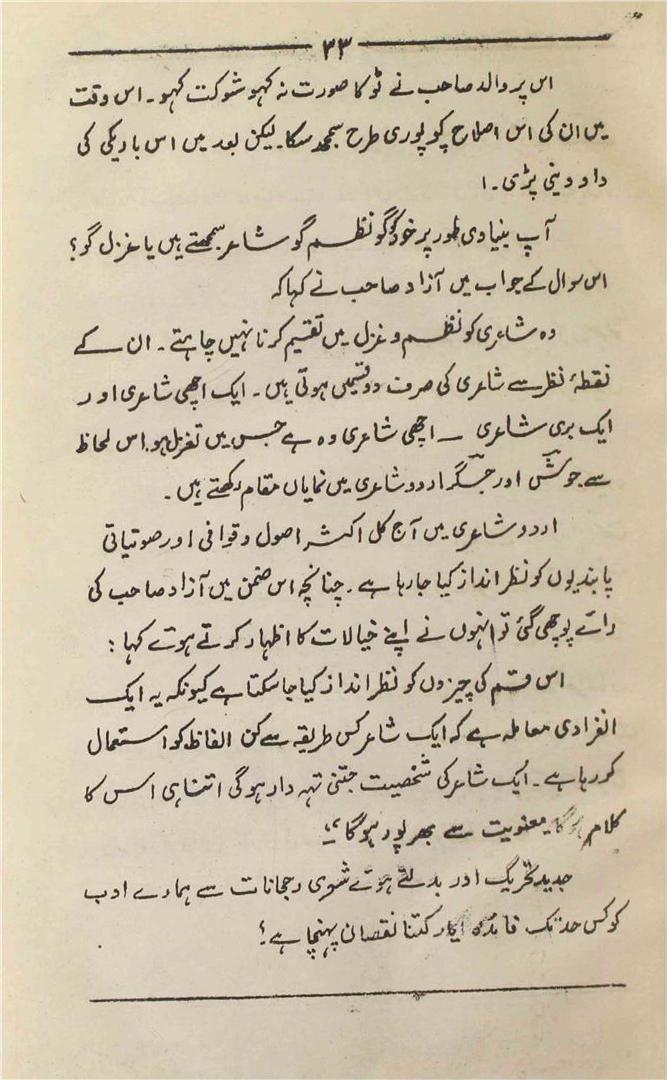 ۳۳
اس پر والد صاحب نے ٹوکا صورت نہ کہو شوکت کہو۔ اس وقت
میں ان کی اس اصلاح کو پوری طرح سمجھ سکا۔ لیکن بعد میں اس باریکی کی
داد دینی پڑی۔ ا
آپ بنیادی طور پر خود کو نظم گو شاعر سمجھتے ہیں یا غزل گو؟
اس سوال کے جواب میں آزاد صاحب نے کہا کہ
وہ شاعری کو نظم و غزل میں تقسیم کرنا نہیں چاہتے۔ ان کے
نقطۂ نظر سے شاعری کی صرف دو قسمیں ہوتی ہیں۔ ایک اچھی شاعری اور
ایک بری شاعری ۔ اچھی شاعری وہ ہے جس میں تغزل ہو۔ اس لحاظ
سے جوش اور جگر اردو شاعری میں نمایاں مقام رکھتے ہیں۔
اردو شاعری میں آج کل اکثر اصول و قوافی اور صوتیاتی
پابندیوں کو نظر انداز کیا جا رہا ہے۔ چنانچہ اس ضمن میں آزاد صاحب کی
رائے پوچھی گئی تو انہوں نے اپنے خیالات کا اظہار کرتے ہوئے کہا:
اس قسم کی چیزوں کو نظر انداز کیا جا سکتا ہے کیونکہ یہ ایک
انفرادی معاملہ ہے کہ ایک شاعر کس طریقہ سے کن الفاظ کو استعمال
کر رہا ہے۔ ایک شاعر کی شخصیت جتنی تہہ دار ہوگی اتنا ہی اس کا
کلام معنویت سے بھرپور ہوگا۔
جدید تحریک اور بدلتے ہوئے شعری رجحانات سے ہمارے ادب
کو کس حد تک فائدہ کتنا نقصان پہنچا ہے؟